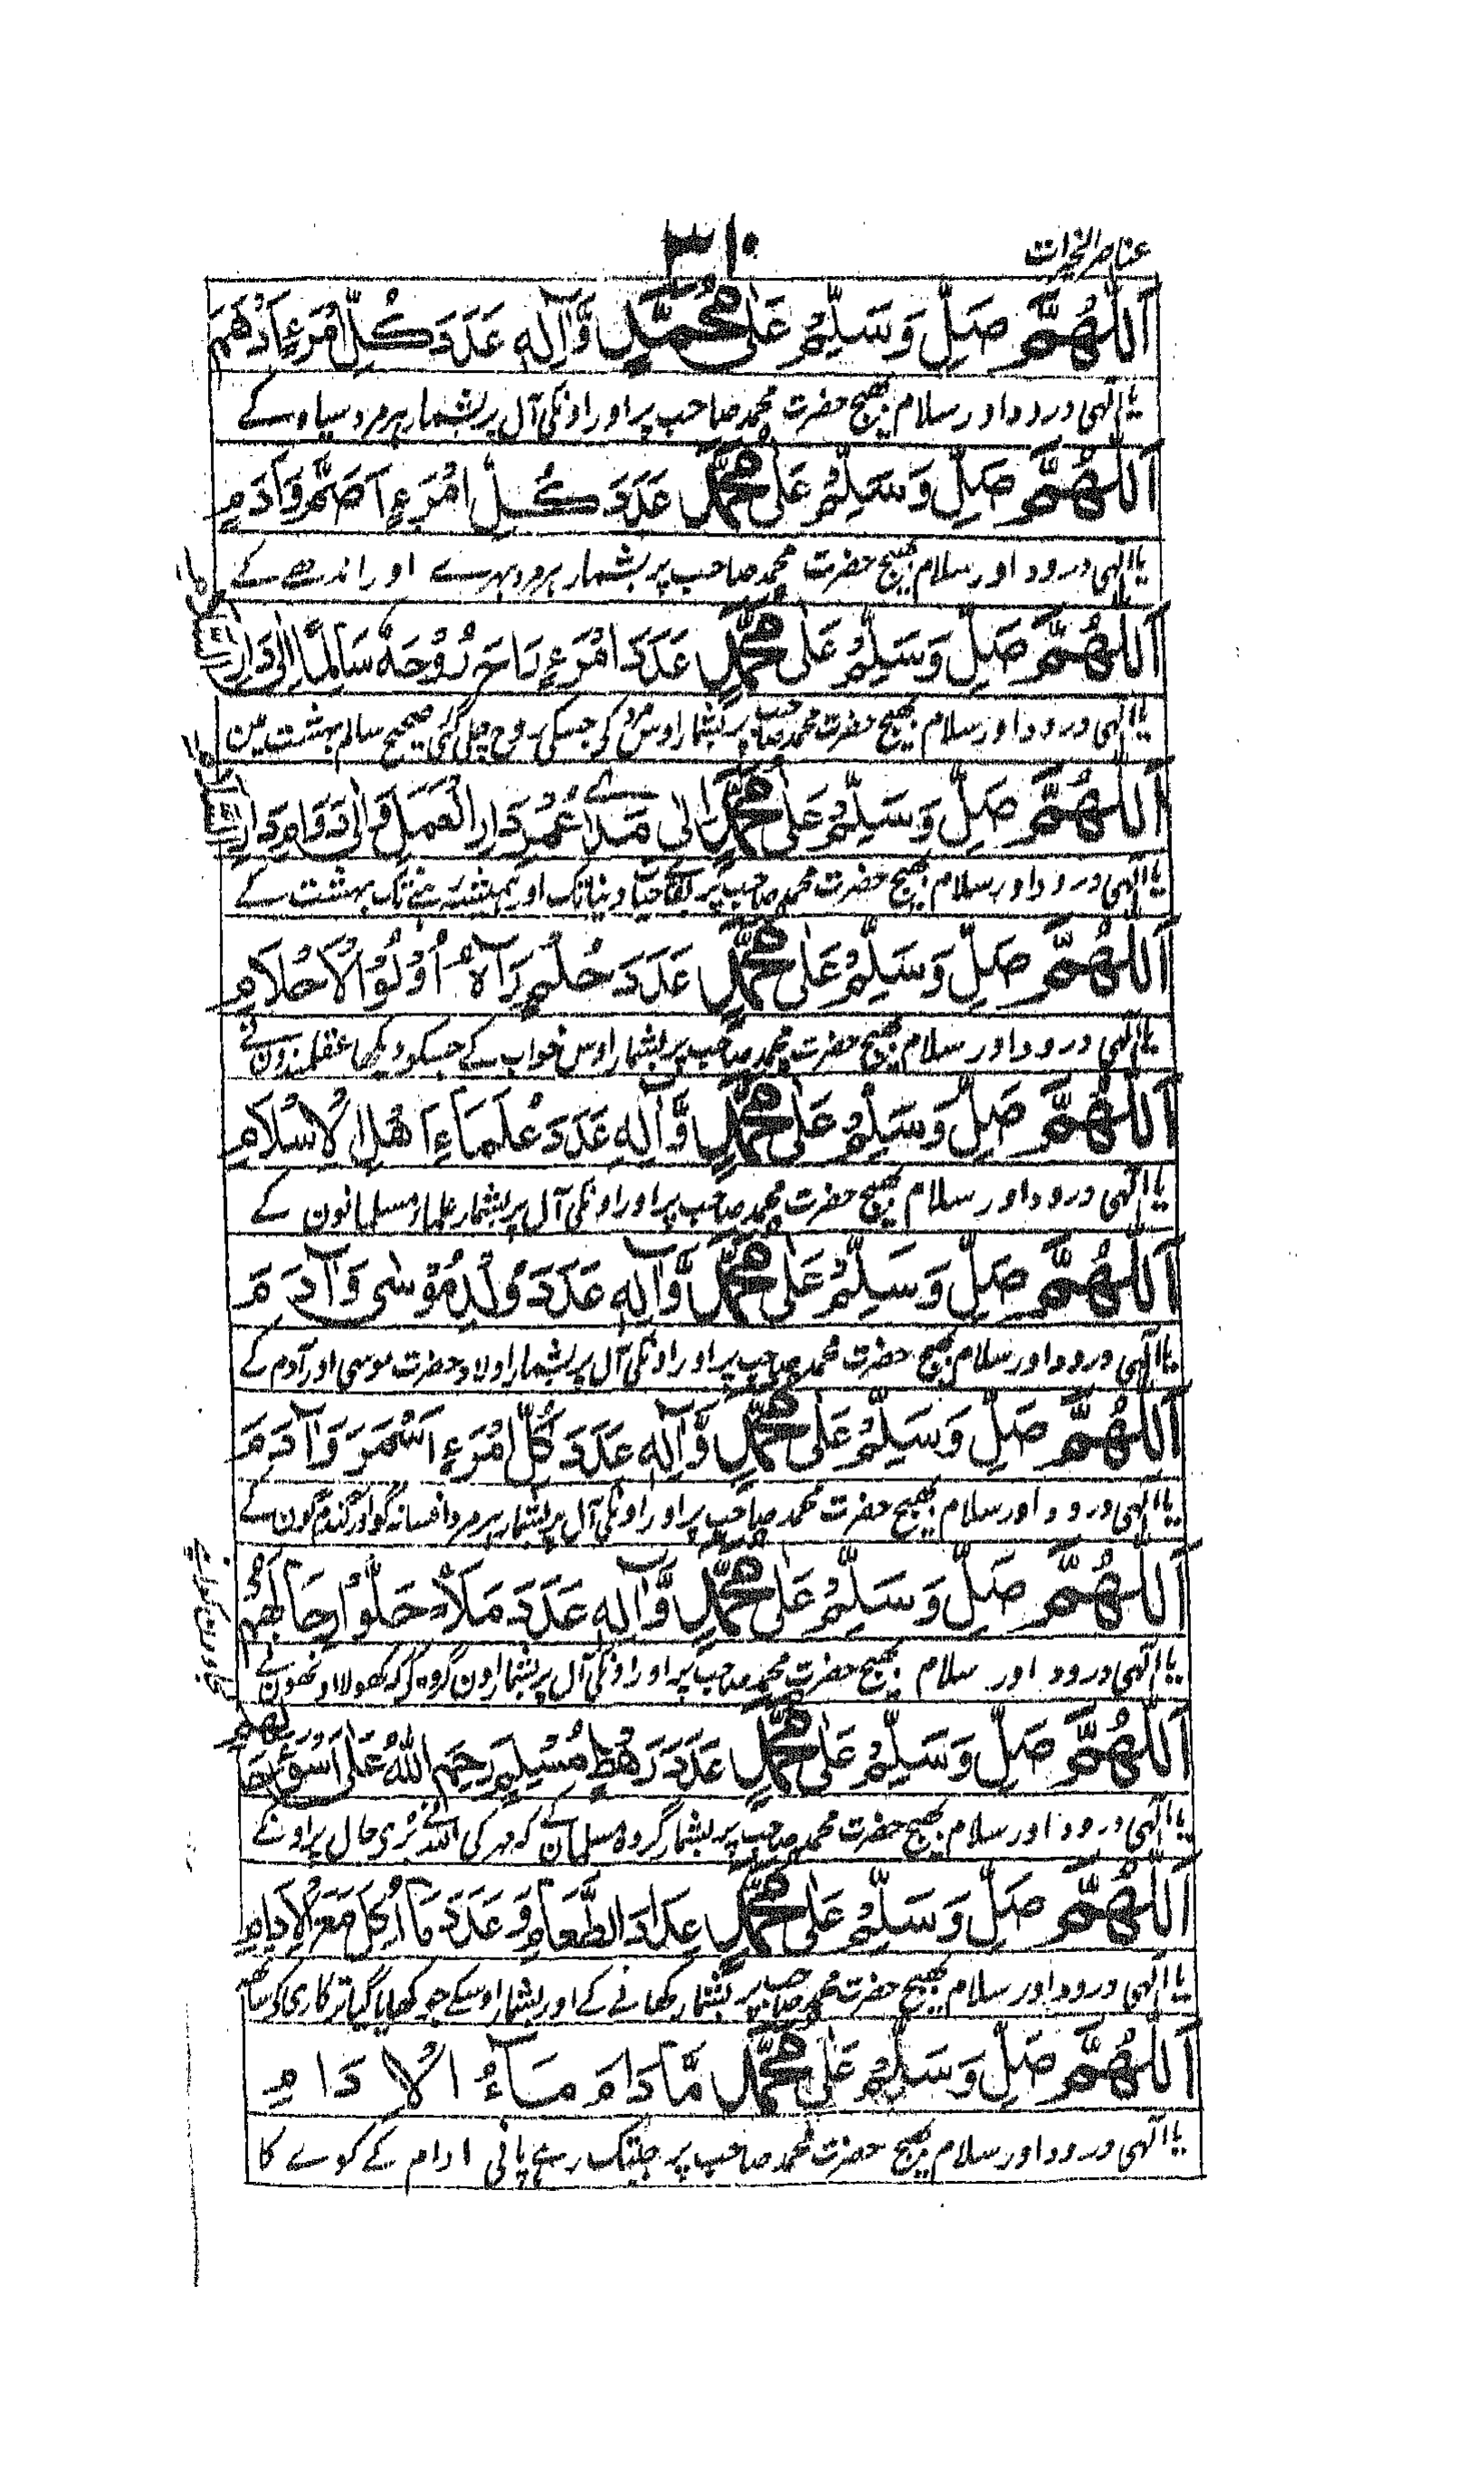 عناصر الخیرات
۳۱۰
اَللّٰهُمَّ صَلِّ وَسَلِّمْ عَلٰی مُحَمَّدٍ وَّاٰلِهٖ عَدَدَ كُلِّ امْرَءٍ اَدْهَمَ
یا الٰہی درود اور سلام بھیج حضرت محمد صاحب پر اور اونکی آل پر بشمار ہر مرد سیاہ کے
اَللّٰهُمَّ صَلِّ وَسَلِّمْ عَلٰی مُحَمَّدٍ عَدَدَ كُلِّ امْرَءٍ اَصَمَّ وَاَدَمٍ
یا الٰہی درود اور سلام بھیج حضرت محمد صاحب پر بشمار ہر مرد بہرے اور اندھے کے
اَللّٰهُمَّ صَلِّ وَسَلِّمْ عَلٰی مُحَمَّدٍ عَدَدَ امْرَءٍ رَاحَ رُوْحُهٗ سَالِمًا اِلٰی دَارِ
یا الٰہی درود اور سلام بھیج حضرت محمد صاحب پر بشمار اوس مرد کی جسکی روح چلی گئی صحیح سالم بہشت مین
اَللّٰهُمَّ صَلِّ وَسَلِّمْ عَلٰی مُحَمَّدٍ اِلٰی مَدٰے عُمُرِ دَارِ الْعَمَلِ وَاِلٰی دَوَامِ دَارِ
یا الٰہی درود اور سلام بھیج حضرت محمد صاحب پر دنیا تک اور ہمیشہ رہنے تک بہشت کے
اَللّٰهُمَّ صَلِّ وَسَلِّمْ عَلٰی مُحَمَّدٍ عَدَدَ حُلْمٍ رَاٰهُ اُوْلُوا الْاَحْلَامِ
یا الٰہی درود اور سلام بھیج حضرت محمد صاحب پر بشمار اوس خواب کے جسکو دیکھا عقلمندون نے
اَللّٰهُمَّ صَلِّ وَسَلِّمْ عَلٰی مُحَمَّدٍ وَّاٰلِهٖ عَدَدَ عُلَمَاءِ اَهْلِ الْاِسْلَامِ
یا الٰہی درود اور سلام بھیج حضرت محمد صاحب پر اور اونکی آل پر بشمار علماء مسلمانون کے
اَللّٰهُمَّ صَلِّ وَسَلِّمْ عَلٰی مُحَمَّدٍ وَّاٰلِهٖ عَدَدَ وُلْدِ مُوْسٰی وَاٰدَمَ
یا الٰہی درود اور سلام بھیج حضرت محمد صاحب پر اور اونکی آل پر بشمار اولاد حضرت موسی اور آدم کے
اَللّٰهُمَّ صَلِّ وَسَلِّمْ عَلٰی مُحَمَّدٍ وَّاٰلِهٖ عَدَدَ كُلِّ امْرَءٍ اَسْمَرَ وَاٰدَمَ
یا الٰہی درود اور سلام بھیج حضرت محمد صاحب پر اور اونکی آل پر بشمار ہر مرد افسانہ گو اور گندم گون کے
اَللّٰهُمَّ صَلِّ وَسَلِّمْ عَلٰی مُحَمَّدٍ وَّاٰلِهٖ عَدَدَ مَلَاءٍ حَلُّوْا رِحَالَهُمْ
یا الٰہی درود اور سلام بھیج حضرت محمد صاحب پر اور اونکی آل پر بشمار اون گروہ کے کہ کھولا اونھون نے
اَللّٰهُمَّ صَلِّ وَسَلِّمْ عَلٰی مُحَمَّدٍ عَدَدَ رَهْطٍ مُسْلِمٍ رَحِمَ اللّٰهُ عَلٰی اَسْوَءِ حَالِهِمْ
یا الٰہی درود اور سلام بھیج حضرت محمد صاحب پر بشمار گروہ مسلمان کے کہ مہر کی اللہ نے بری حال پر اونکے
اَللّٰهُمَّ صَلِّ وَسَلِّمْ عَلٰی مُحَمَّدٍ عِدَادَ الطَّعَامِ وَعَدَدَ مَا اُكِلَ مَعَ الْاِدَامِ
یا الٰہی درود اور سلام بھیج حضرت محمد صاحب پر بشمار کھانے کے اور بشمار اوسکے جو کھایا گیا ترکاری کی ساتھ
اَللّٰهُمَّ صَلِّ وَسَلِّمْ عَلٰی مُحَمَّدٍ مَّا دَامَ مَآءُ الْاُدَامِ
یا الٰہی درود اور سلام بھیج حضرت محمد صاحب پر جبتک رہے پانی ادام کے کوے کا